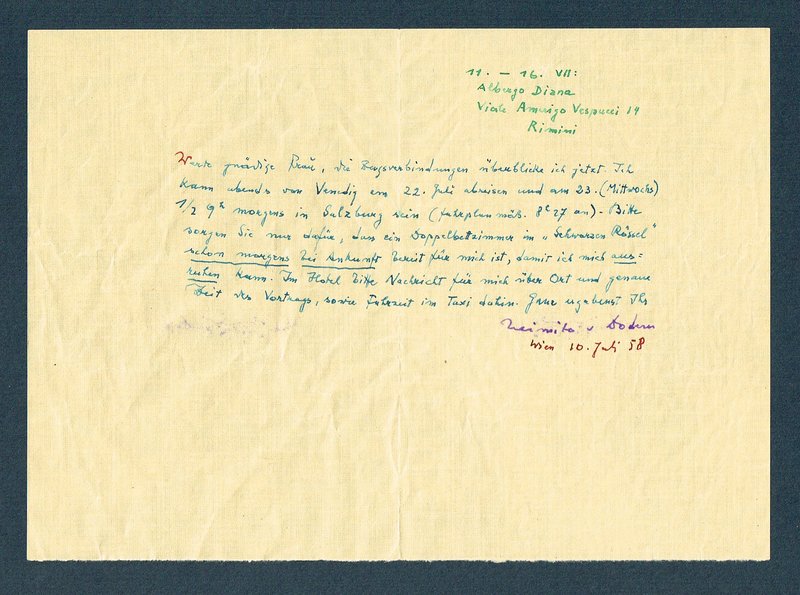 11. – 16. VII:
Albergo Diana
Viale Amerigo Vespucci 19
Rimini
Werte gnädige Frau, die Zugsverbindungen überblicke ich jetzt. Ich
kann abends von Venedig am 22. Juli abreisen und am 23. (Mittwochs)
1/2 9h morgens in Salzburg sein (fahrplanmäß. 8h27 an). Bitte
sorgen Sie nur dafür, dass ein Doppelbettzimmer im „Schwarzen Rössel"
schon morgens bei Ankunft bereit für mich ist, damit ich mich aus=
ruhen kann. Im Hotel bitte Nachricht für mich über Ort und genaue
Zeit des Vortrags, sowie Fahrzeit im Taxi dahin. Ganz ergebenst Ihr
Heimito v Doderer
Wien 10. Juli 58